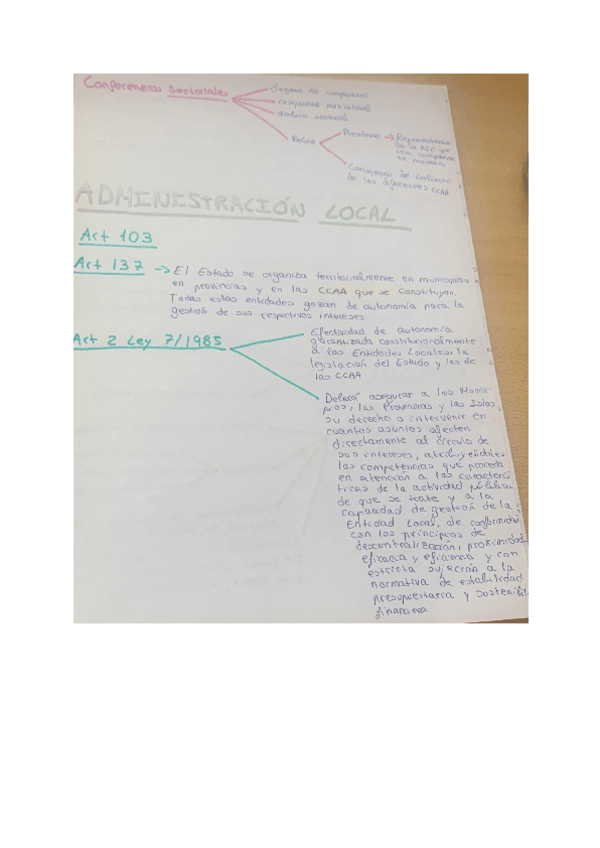 Conferencias Sectoriales
Órgano de cooperación
Composición multilateral
ámbito sectorial
Reúne
Presidente → Representante
de la AGE que
sea competente
en materia
Consejeros de Gobierno
de las diferentes CCAA
ADMINISTRACIÓN LOCAL
Art 103
Art 137 → El Estado se organiza territorialmente en municipios
en provincias y en las CCAA que se constituyan.
Todas estas entidades gozan de autonomía para la
gestión de sus respectivos intereses
Art 2 Ley 7/1985
Efectividad de autonomía
garantizada constitucionalmente
a las Entidades Locales: la
legislación del Estado y las de
las CCAA
Deberá asegurar a los Munici-
pios, las Provincias y las Islas,
su derecho a intervenir en
cuantos asuntos afecten
directamente al círculo de
sus intereses, atribuyéndoles
las competencias que proceda
en atención a las caracterís
ticas de la actividad pública
de que se trate y a la
capacidad de gestión de la
Entidad Local, de conformidad
con los principios de
descentralización, proximidad
eficacia y eficiencia y con
estricta sujección a la
normativa de estabilidad
presupuestaria y sostenibil.
financiera